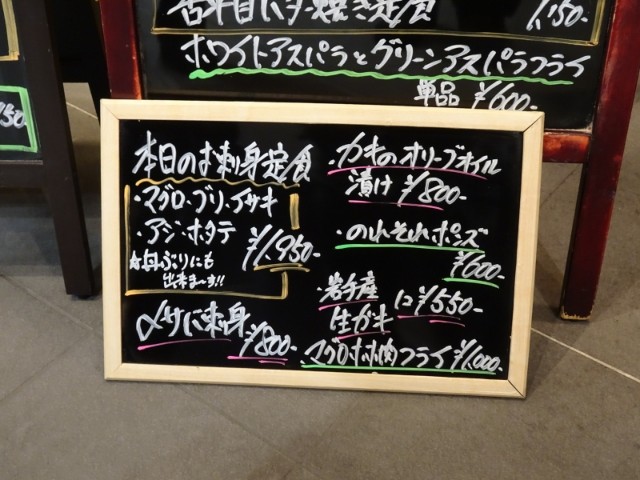 1,150-
ホワイトアスパラとグリーンアスパラフライ
単品 ¥600-
本日のお刺身定食
・マグロ・ブリ・イサキ
・アジ・ホタテ
¥1,950-
☆丼ぶりにも
出来ま〜す!!
〆サバ刺身
¥800-
・カキのオリーブオイル
漬け ¥800-
・のれそれポンズ
¥600-
・岩手産
生ガキ
1コ¥550-
マグロホホ肉フライ¥1,000-